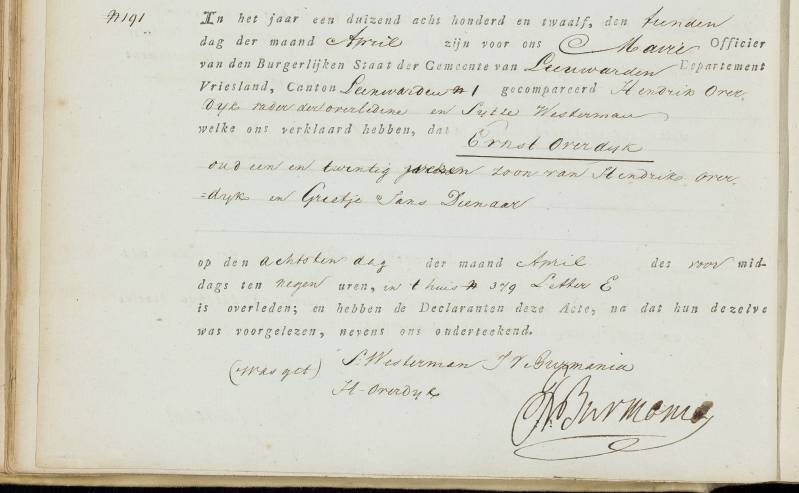 N 191
In het jaar een duizend acht honderd en twaalf, den tienden
dag der maand April zijn voor ons Maire Officier
van den Burgerlijken Staat der Gemeente van Leeuwarden Departement
Vriesland, Canton Leeuwarden N 1 gecompareerd Hendrik Over-
dijk vader der overledene en Sytse Westerman
welke ons verklaard hebben, dat Ernst Overdijk
oud een en twintig jaaren zoon van Hendrik Over-
=dijk en Grietje Jans Dienaar
op den achtsten dag der maand April des voor mid-
dags ten negen uren, in t huis N 379 Letter E
is overleden; en hebben de Declaranten deze Acte, na dat hun dezelve
was voorgelezen, nevens ons onderteekend.
(was get) S. Westerman J V Burmania
H. Overdijk
Burmania